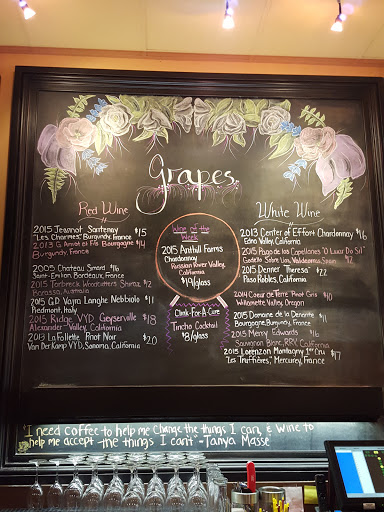 Grapes
Red Wine
2015 Jewnot Santenay $15
"Les Charmes", Burgundy, France
2013 G Amiot et Fils Bourgogne $14
Burgundy, France
2005 Chateau Simard $16
Saint-Emilion, Bordeaux, France
2015 Torbreck Woodcutters Shiraz $12
Barossa, Australia
2015 GD Vajra Langhe Nebbiolo $11
Piedmont, Italy
2015 Ridge VYD Geyserville $18
Alexander Valley, California
2013 La Follette Pinot Noir $20
Van Der Kamp VYD, Sonoma, California
Wine of the
Week
2015 Anthill Farms
Chardonnay
Russian River Valley,
California
$19/glass
Clink-For-A-Cure
Tincho Cocktail
$8/glass
White Wine
2013 Center of Effort Chardonnay $16
Edna Valley, California
2015 Pago de los Capellanes "O Luar Do Sil"
Godello Sobre Lias, Valdeorras, Spain $12
2015 Denner "Theresa" $22
Paso Robles, California
2014 Coeur de Terre Pinot Gris $10
Willamette Valley, Oregon
2015 Domaine de la Denante $11
Bourgogne, Burgundy, France
2015 Merry Edwards $16
Sauvignon Blanc, RRV, California
2015 Lorenzon Montagny 1er Cru $17
"Les Truffières", Mercurey, France
"I need coffee to help me change the things I can, & wine to
help me accept the things I can't" -Tanya Masse